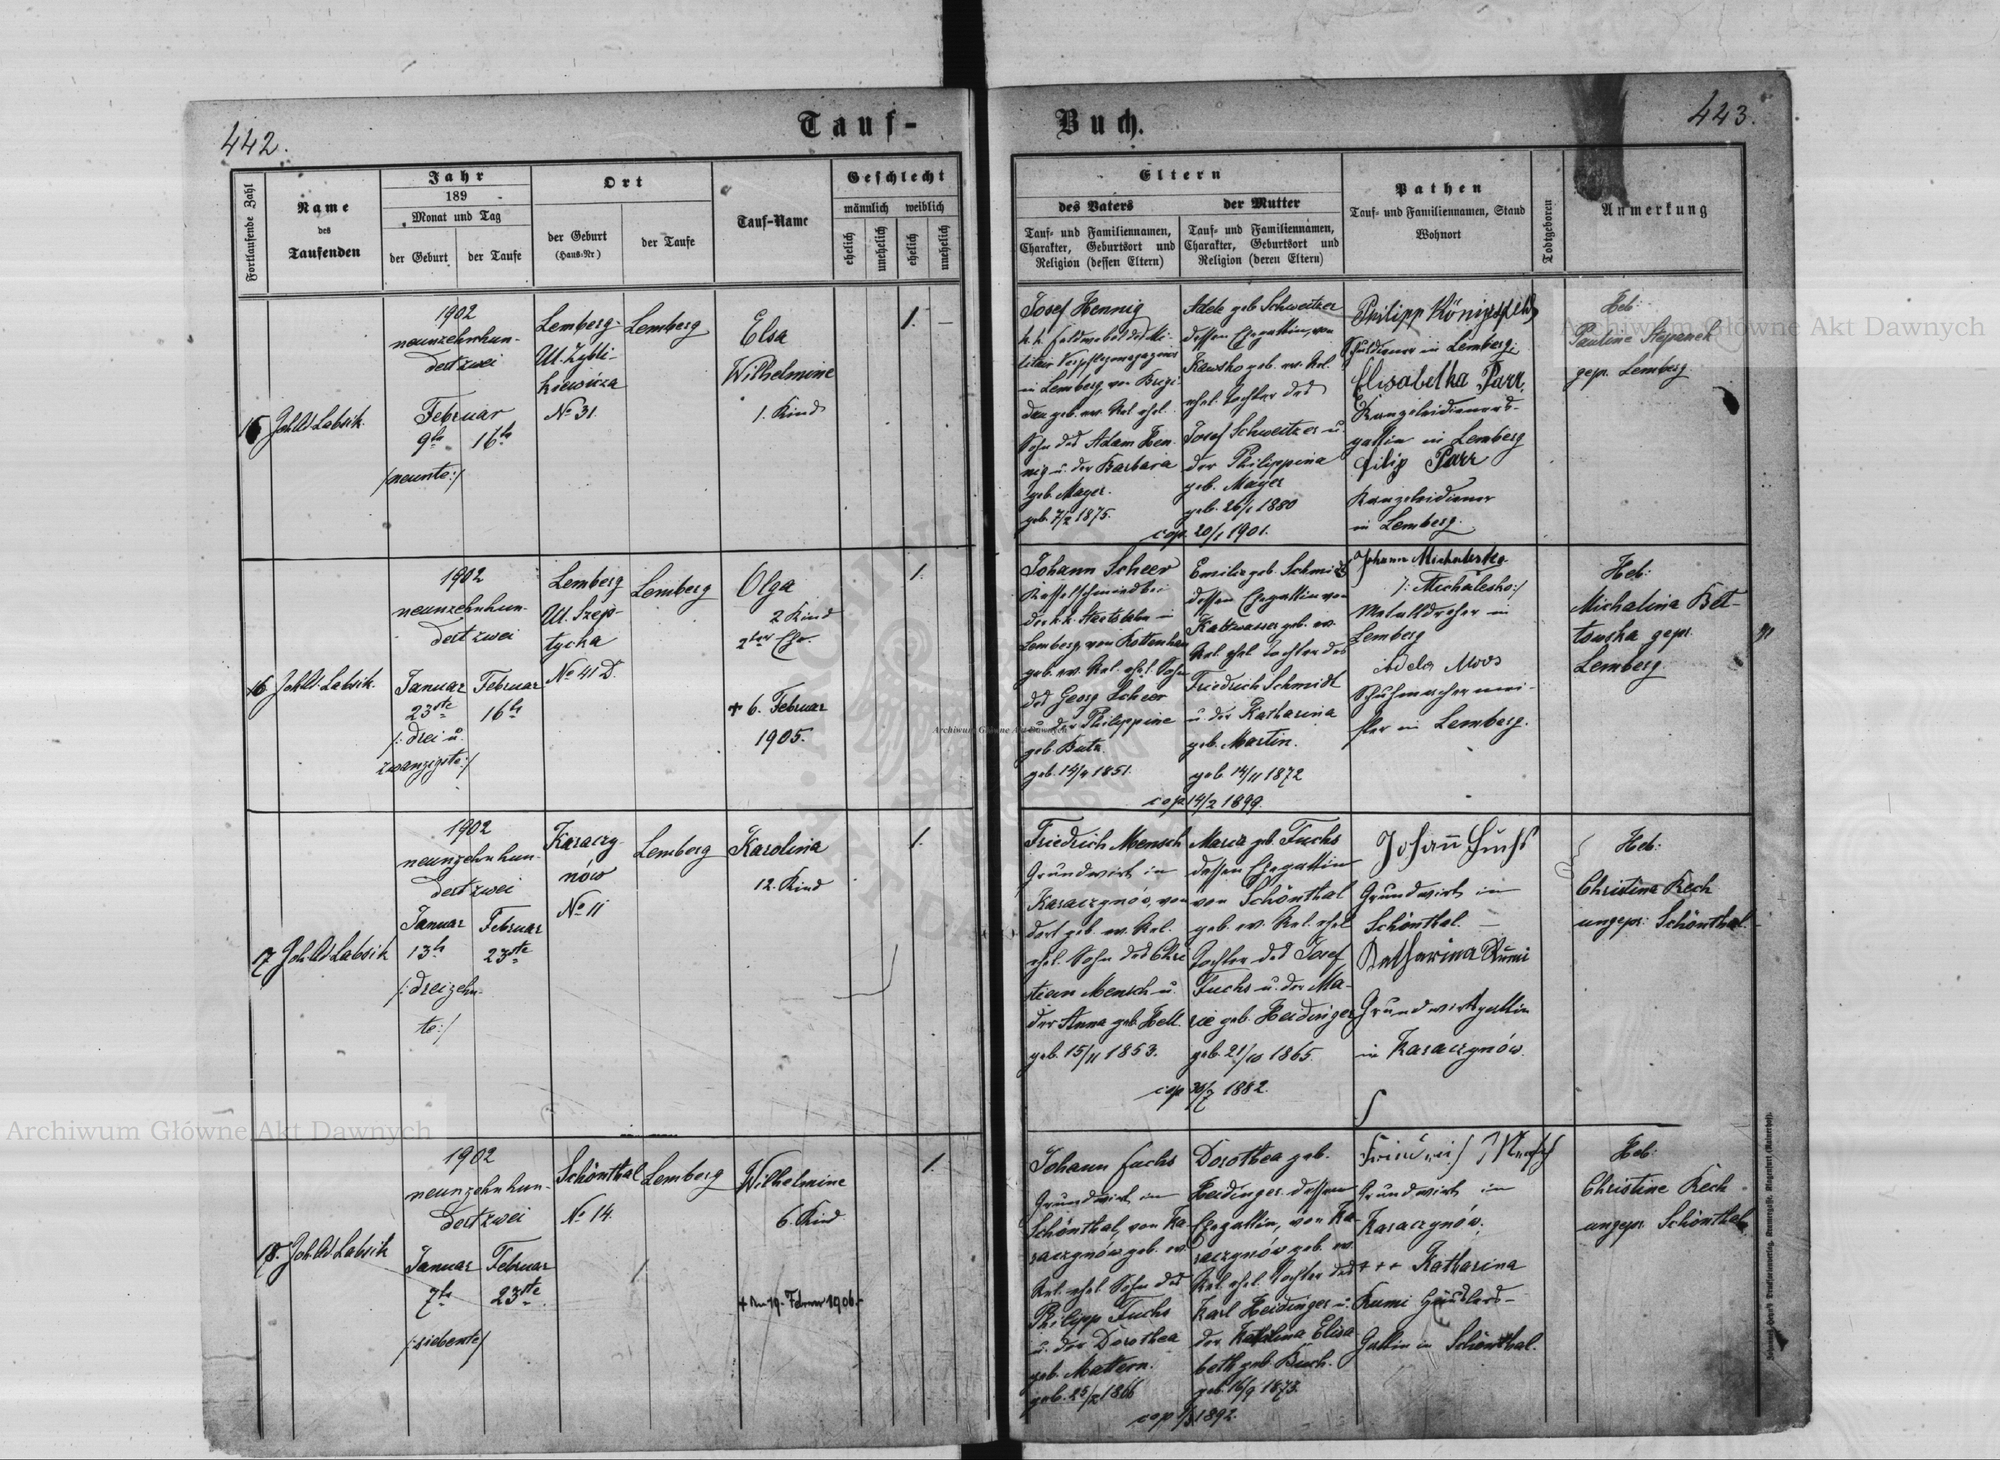 442.
Tauf-
Buch.
443.
Fortlaufende Zahl
Name
des
Taufenden
Jahr
189
Monat und Tag
der Geburt
der Taufe
Ort
der Geburt
(Haus-Nr)
der Taufe
Tauf-Name
Geschlecht
männlich
weiblich
ehelich
unehelich
ehelich
unehelich
Eltern
des Vaters
der Mutter
Tauf- und Familiennamen,
Charakter, Geburtsort und
Religion (dessen Eltern)
Tauf- und Familiennamen,
Charakter, Geburtsort und
Religion (deren Eltern)
Pathen
Tauf- und Familiennamen, Stand
Wohnort
Todtgeboren
Anmerkung
15
1902
neunzehnhun-
dert zwei
Februar
9te 16te
/neunte:/
Lemberg
Ul. Zybli-
kiewicza
No 31.
Lemberg
Elsa
Wilhelmine
1. Kind
1.
Josef Hennig
k. k. Feldwebel des Mi-
litair Verpflegsmagazins
in Lemberg, von Brigi-
dau geb. ev. Rel. ehel.
Sohn des Adam Hen-
nig u. der Barbara
geb. Mayer.
geb. 7/2 1875.
Adele geb. Schweitzer
dessen Ehegattin, von
geb. ev. Rel.
ehel. Tochter des
Josef Schweitzer u.
der Philippina
geb. Mayer
geb. 26/1 1880
cop. 20/1 1901.
Philipp Königsfeld
Schuldiener in Lemberg;
Elisabetha Parr,
Kanzleidieners-
gattin in Lemberg
Filip Parr
Kanzleidiener
in Lemberg.
Heb:
Pauline Stepanek
gepr. Lemberg
16
1902
neunzehnhun-
dert zwei
Januar Februar
23ste 16te
/: drei u.
zwanzigste:/
Lemberg
Ul. Szep-
tycka
No 41 D.
Lemberg
Olga
2 Kind
2ter Ehe.
+ 6. Februar
1905.
1.
Johann Scheer
Kesselschmied bei
der k. k. Staatsbahn in
Lemberg, von Rottenhan
geb. ev. Rel. ehel. Sohn
des Georg Scheer
u. der Philippine
geb. Butz
1851.
Emilie geb. Schmidt
dessen Ehegattin von
Kaltwasser geb. ev.
Rel. ehel. Tochter des
Friedrich Schmidt
u. der Katharina
geb. Martin.
geb. 14/11 1872
cop. 14/2 1899.
Johann
/: Michalesko:/
Metalldreher in
Lemberg
Adela Moos
Schuhmachermei-
ster in Lemberg.
Heb:
Michalina Bet-
towska gepr.
Lemberg.
17
1902
neunzehnhun-
dert zwei
Januar Februar
13te 23ste
/: dreizehn-
te:/
Karaczy-
nów
No 11
Lemberg
Karolina
12. Kind
1.
Friedrich Mensch
Grundwirt in
Karaczynów, von
dort geb. ev. Rel.
ehel. Sohn des Chri
stian Mensch u.
der Anna geb. Hell.
geb. 15/11 1853.
Maria geb. Fuchs
dessen Ehegattin
von Schönthal
geb. ev. Rel. ehel
Tochter des Josef
Fuchs u. der Ma-
rie geb. Heidinger
geb. 21/10 1865.
cop 1882.
Johann Fuchs
Grundwirt in
Schönthal.
Katharina Kumi
Grundwirtsgattin
in Karaczynów.
Heb:
Christina Rech
ungepr: Schönthal
18.
1902
neunzehnhun-
dert zwei
Januar Februar
7te 23ste
/:siebente/
Schönthal
No 14.
Lemberg
Wilhelmine
6. Kind
+ Februar 1906.
1.
Johann Fuchs
Grundwirt in
Schönthal, von Ka-
raczynów geb. ev.
Rel. ehel. Sohn des
Philipp Fuchs
u. der Dorothea
geb. Mattern.
geb. 25/2 1866
Dorothea geb.
Heidinger dessen
Ehegattin, von Ka-
raczynów geb. ev.
Rel. ehel. Tochter des
Karl Heidinger u.
der Elisa
beth geb. Buch.
geb. 16/9 1873.
1892.
Grundwirt in
Karaczynów;
+++ Katharina
Kumi Häuslers-
Gattin in Schönthal.
Heb:
Christine Rech
ungepr. Schönthal
Archiwum Główne Akt Dawnych
Archiwum Główne Akt Dawnych
Archiwum Główne Akt Dawnych